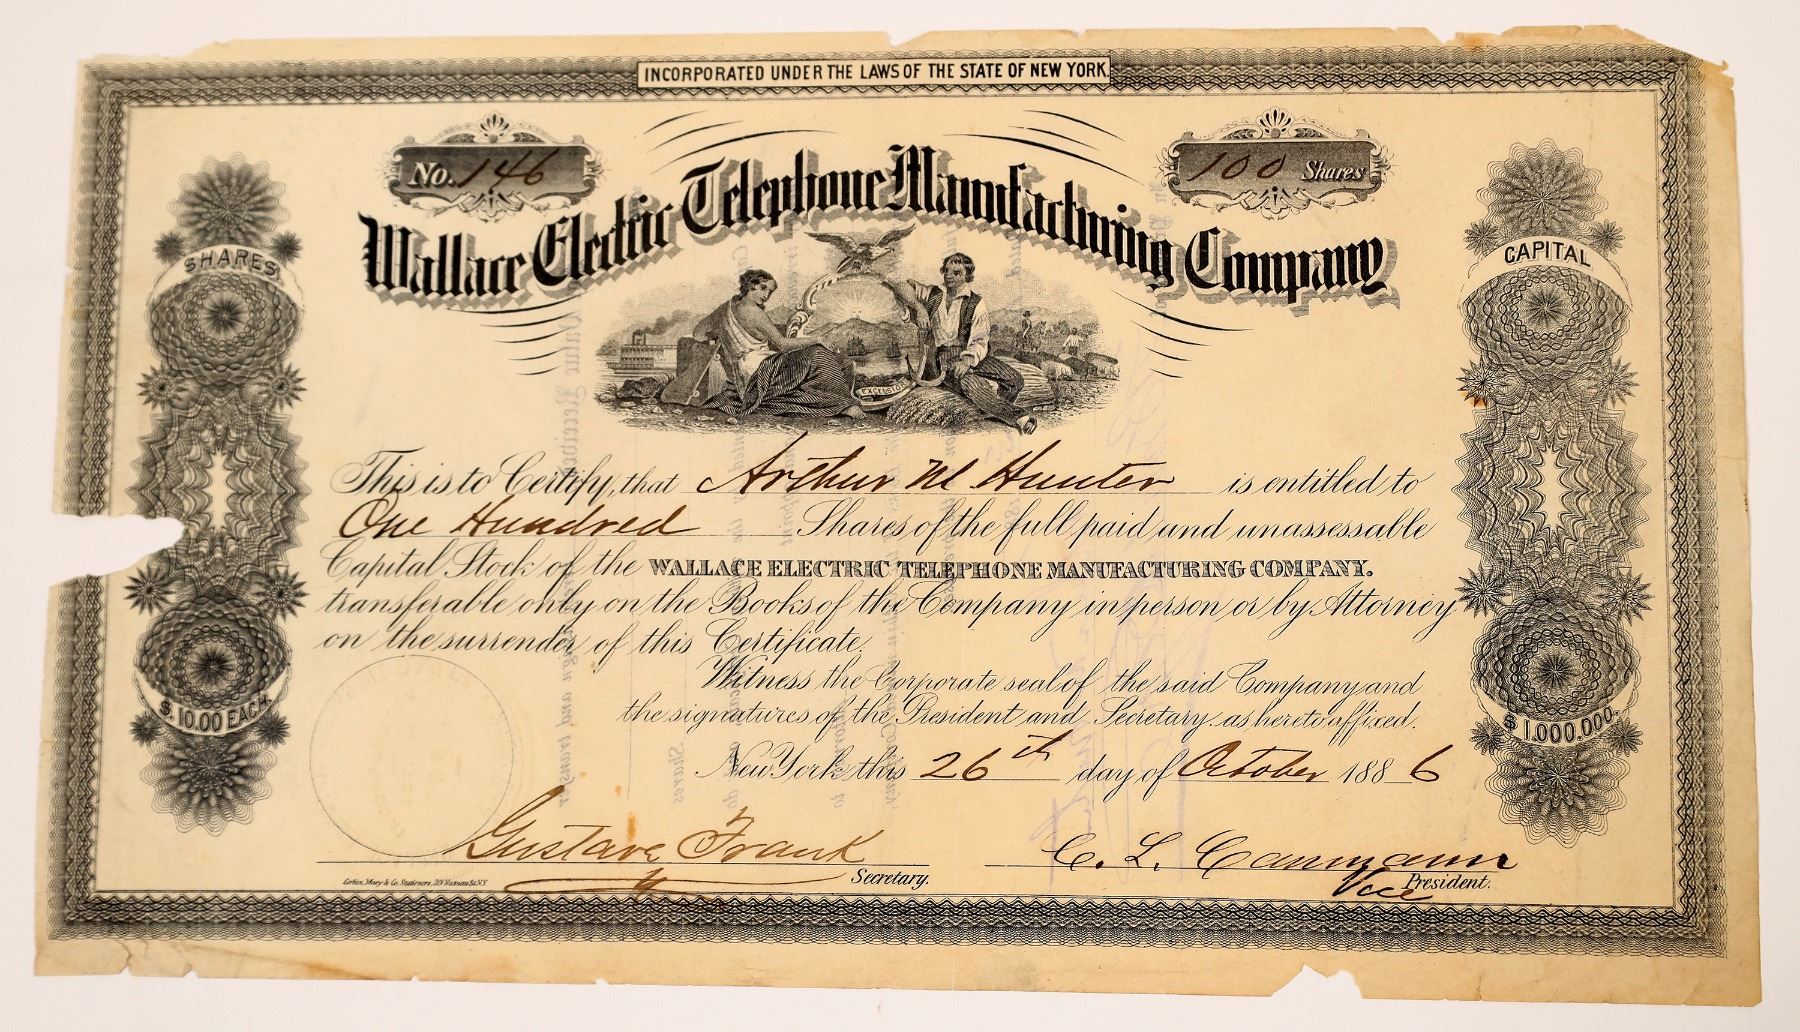 INCORPORATED UNDER THE LAWS OF THE STATE OF NEW YORK.
No. 146
100 Shares
Wallace Electric Telephone Manufacturing Company
SHARES
$.10.00 EACH.
CAPITAL
$1.000.000.
EXCELSIOR
This is to Certify, that Arthur M Hunter is entitled to
One Hundred Shares of the full paid and unassessable
Capital Stock of the WALLACE ELECTRIC TELEPHONE MANUFACTURING COMPANY.
transferable only on the Books of the Company in person or by Attorney
on the surrender of this Certificate.
Witness the Corporate seal of the said Company and
the signatures of the President and Secretary. as hereto affixed.
New York this 26th day of October 1886
Gustave Frank
Secretary.
C. L.
Vice President.
& Co. Stationers, 39 Nassau St. N.Y.